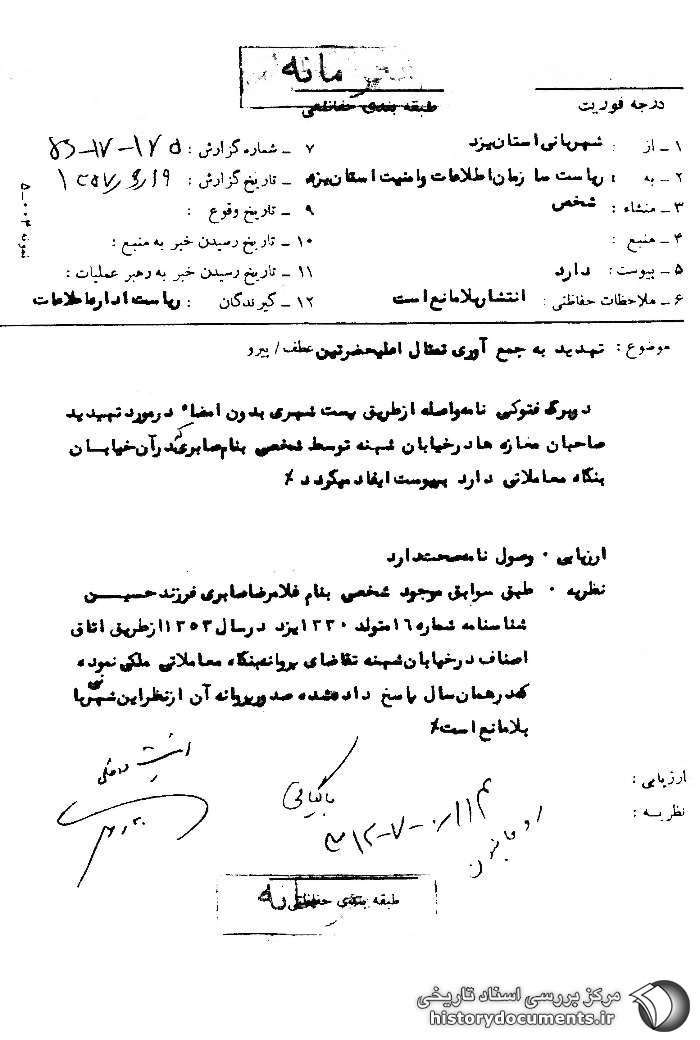 محرمانه
طبقه بندی حفاظتی
درجه فوریت
۱ ـ از : شهربانی استان یزد
۲ ـ به : ریاست سازمان اطلاعات و امنیت استان یزد
۳ ـ منشاء : شخص
۴ ـ منبع :
۵ ـ پیوست : دارد
۶ ـ ملاحظات حفاظتی : انتشار بلامانع است
۷ ـ شماره گزارش :
۸ ـ تاریخ گزارش :
۹ ـ تاریخ وقوع :
۱۰ ـ تاریخ رسیدن خبر به منبع :
۱۱ ـ تاریخ رسیدن خبر به رهبر عملیات :
۱۲ ـ گیرندگان : ریاست اداره اطلاعات
نمونه ۰۰۴ ـ ۵
موضوع : تهدید به جمع آوری تمثال اعلیحضرتین عطف / پیرو
دوبرگ فتوکپی نامه واصله از طریق پست شهری بدون امضاء در مورد تهدید
صاحبان مغازه ها در خیابان شهبنه توسط شخصی بنام صابری که در آن خیابان
بنگاه معاملاتی دارد بپیوست ایفاد میگردد ٪
ارزیابی ۰ وصول نامه صحت دارد
نظریه ۰ طبق سوابق موجود شخصی بنام غلامرضا صابری فرزند حسین
شناسنامه شماره ۱۶ متولد ۱۳۳۰ یزد در سال ۱۳۵۳ از طریق اتاق
اصناف در خیابان شهبنه تقاضای پروانه بنگاه معاملاتی ملکی نموده
که در همان سال پاسخ داده شده صدور پروانه آن از نظر این شهربانی
بلامانع است ٪
ارزیابی :
نظریه :
طبقه بندی حفاظتی
مرکز بررسی اسناد تاریخی
historydocuments.ir